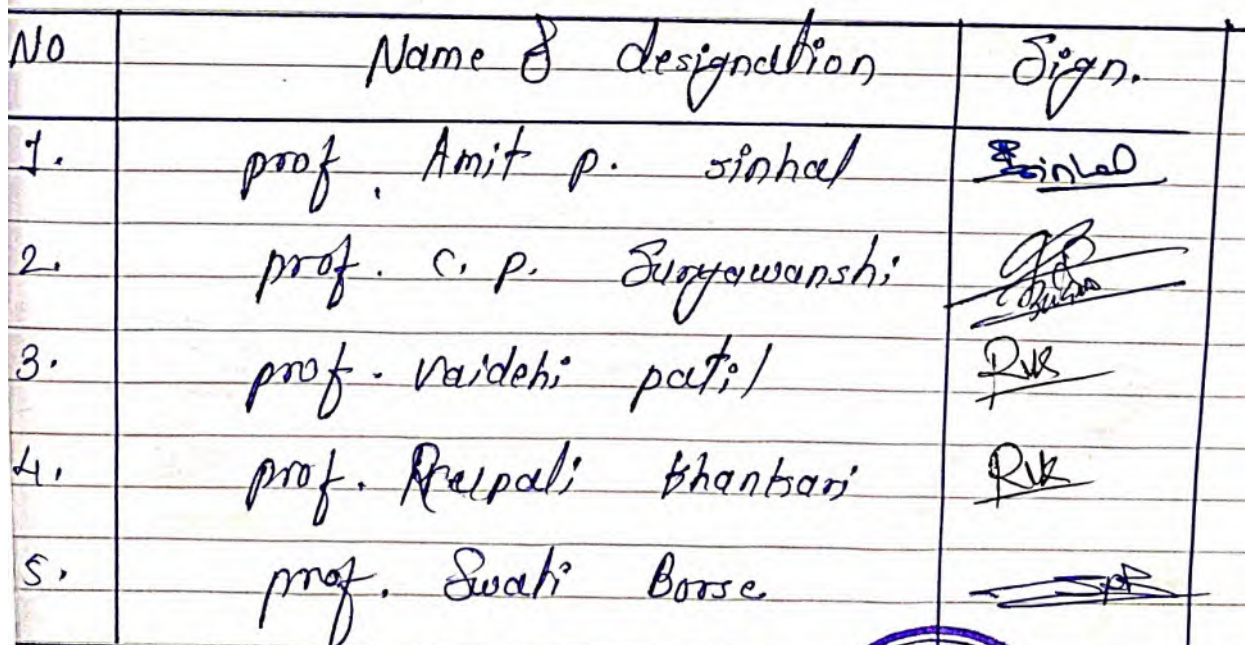 No Name & designation Sign.
1. prof. Amit p. sinhal Sinhal
2. prof. C. P. Suryawanshi
3. prof. Vaidehi patil RVK
4. prof. Rupali RVK
5. prof. Swati Borse